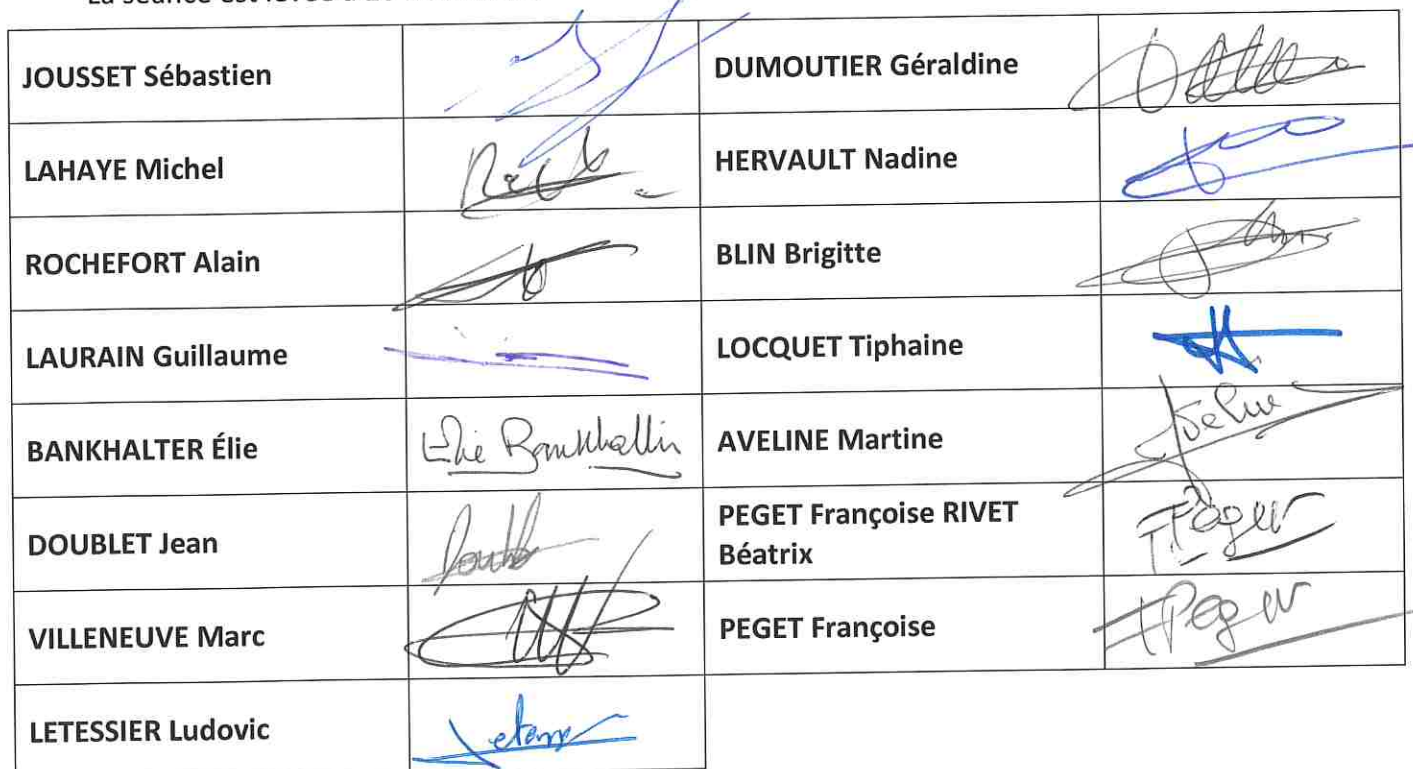 La séance est levée à
JOUSSET Sébastien
DUMOUTIER Géraldine
LAHAYE Michel
HERVAULT Nadine
ROCHEFORT Alain
BLIN Brigitte
LAURAIN Guillaume
LOCQUET Tiphaine
BANKHALTER Élie
Elie Bankhalter
AVELINE Martine
DOUBLET Jean
PEGET Françoise RIVET
Béatrix
FPeget
VILLENEUVE Marc
PEGET Françoise
FPeget
LETESSIER Ludovic